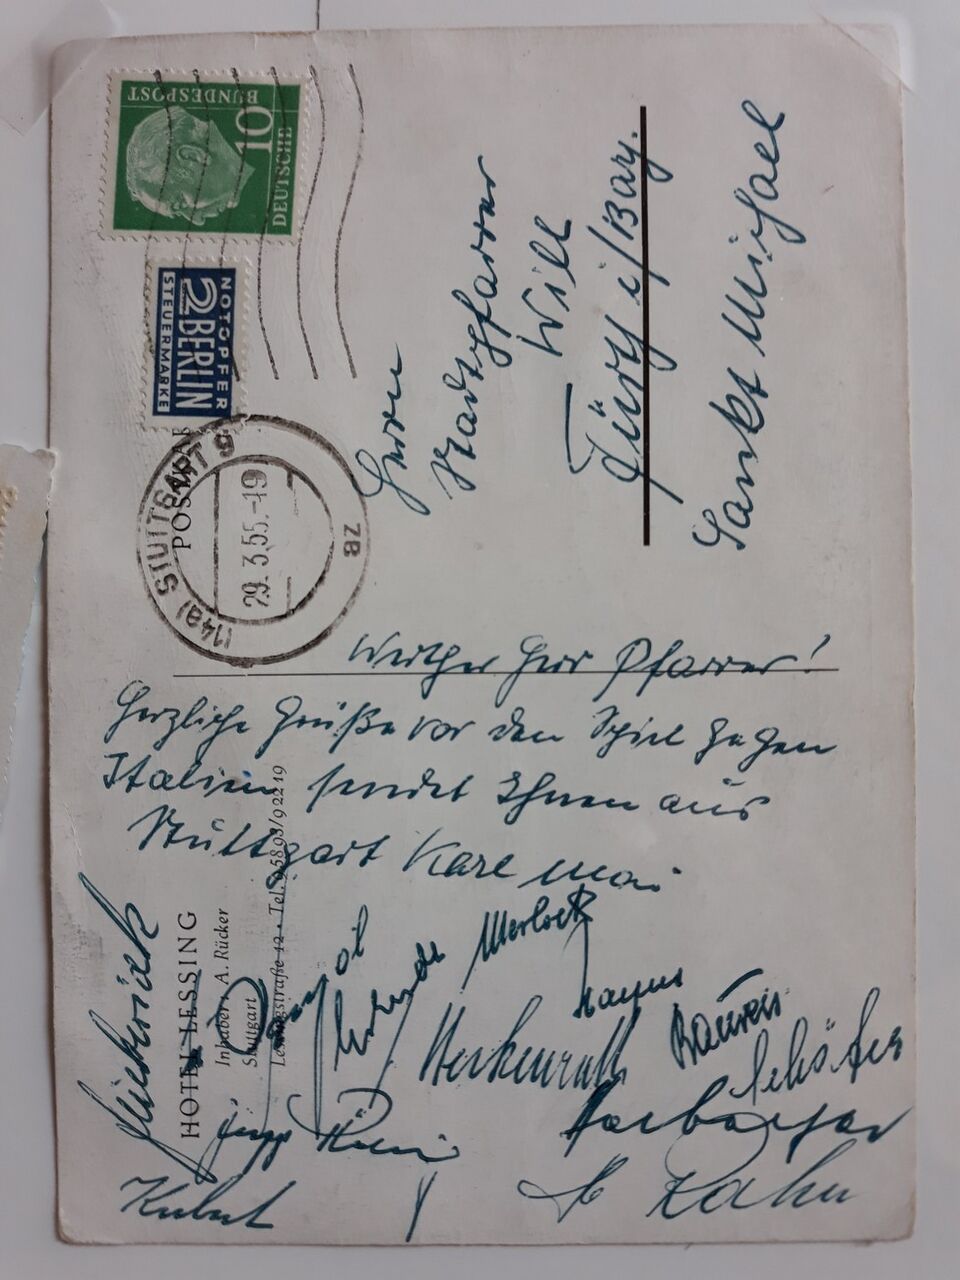 DEUTSCHE
BUNDESPOST
10
NOTOPFER
2 BERLIN
STEUERMARKE
(14a) STUTTGART 9
29.3.55.-19
ZB
Herrn
Stadtpfarrer
Will
Fürth i/Bay.
Sankt Michael
Werther Herr Pfarrer!
Herzliche Grüße vor den Spiel gegen
Italien sendet Ihnen aus
Stuttgart Karl Mai
HOTEL LESSING
Inhaber: A. Rücker
Stuttgart
Lessingstraße 12 · Tel. 95893/92219
Posipal
Erhardt
Morlock
Herkenrath
Schäfer
Harbacher